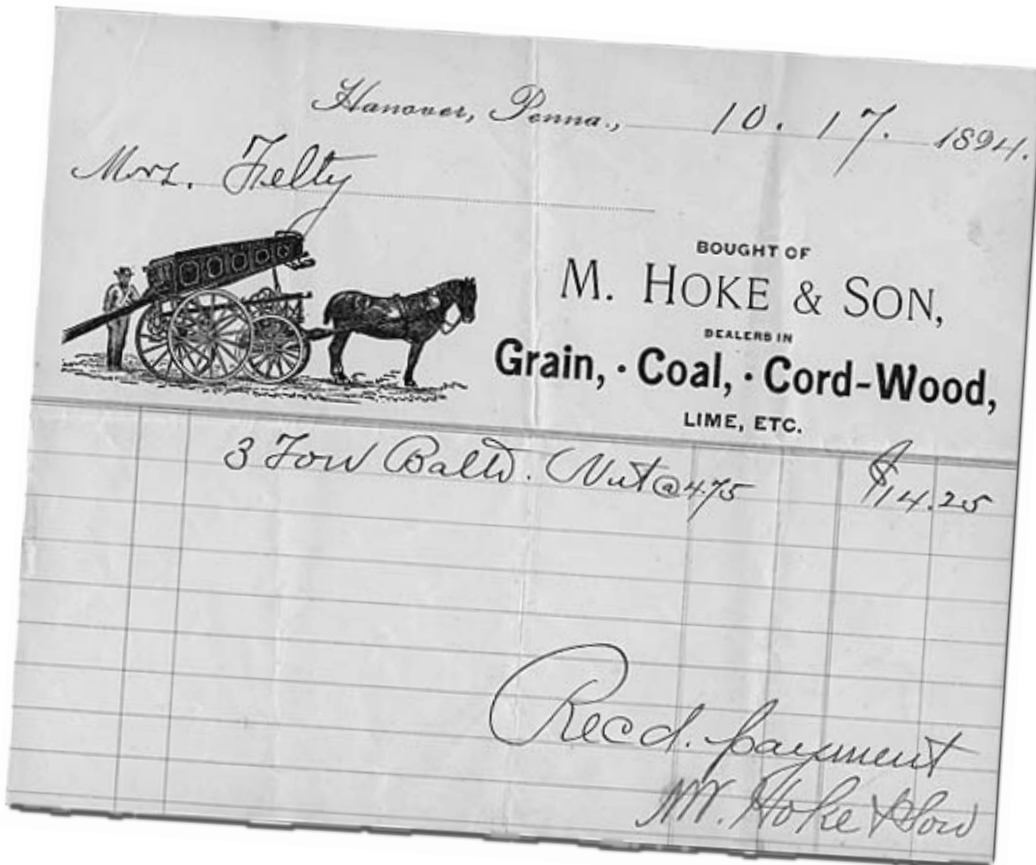 Hanover, Penna., 10. 17. 1894.
Mrs. Felty
BOUGHT OF
M. HOKE & SON,
DEALERS IN
Grain, · Coal, · Cord-Wood,
LIME, ETC.
3 Ton Nut @ 4.75 $14.25
Recd. payment
M. Hoke & Son